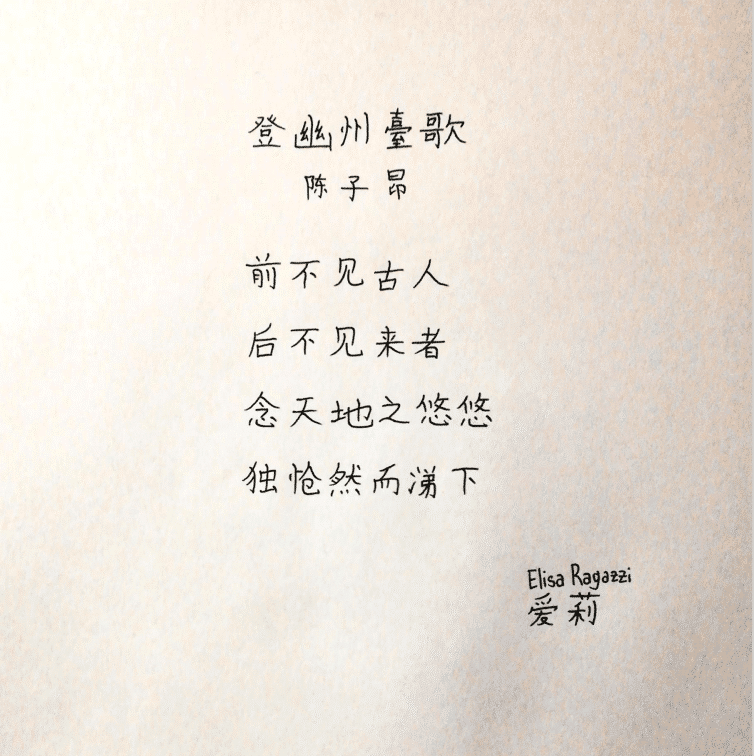 登幽州臺歌
陈子昂
前不见古人
后不见来者
念天地之悠悠
独怆然而涕下
Elisa Ragazzi
爱莉